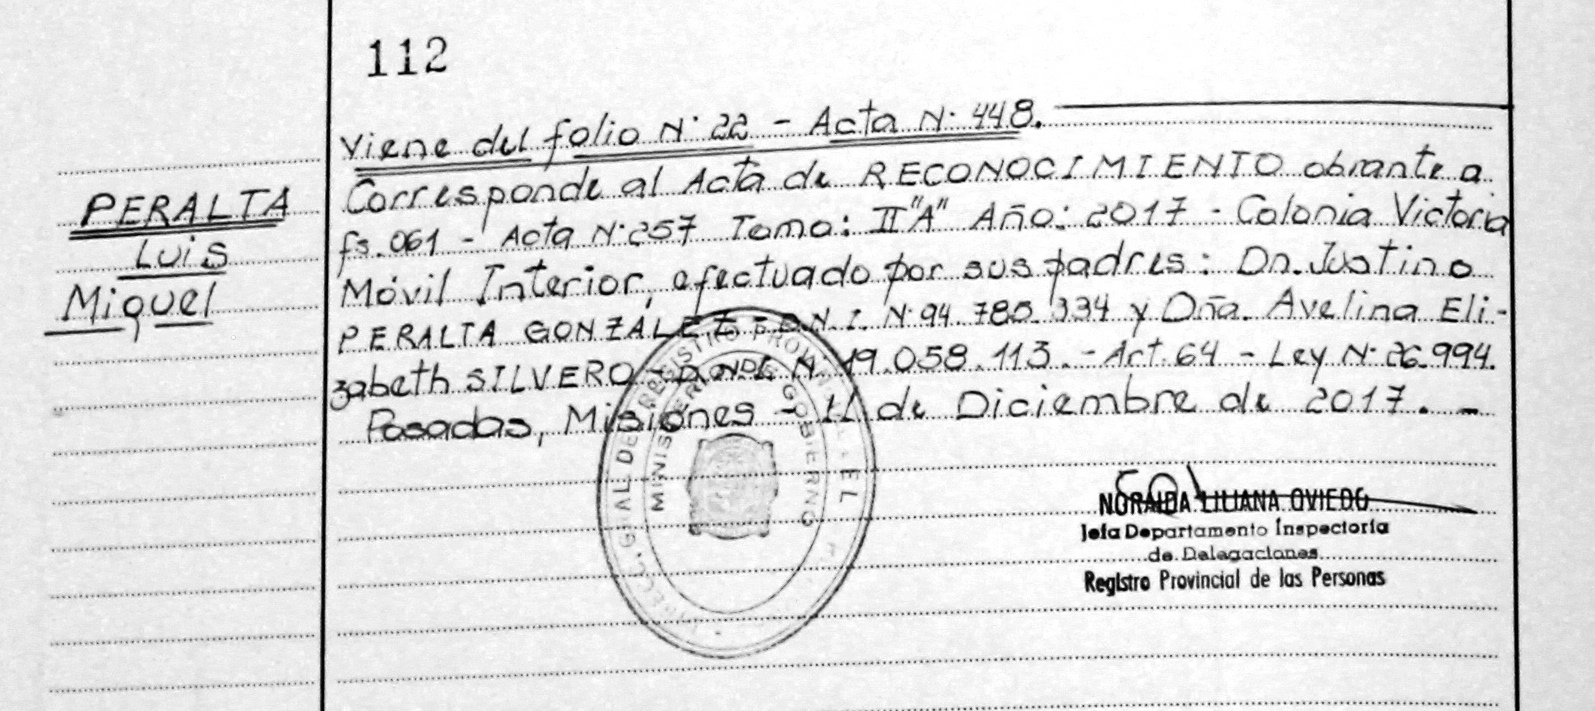 112
Viene del folio N° 22 - Acta N° 448.
Corresponde al Acta de RECONOCIMIENTO obrante a
fs. 061 - Acta N° 257 Tomo: II "A" Año: 2017 - Colonia Victoria
Móvil Interior, efectuado por sus padres: Dn. Justino
PERALTA GONZÁLEZ - D.N.I. N° 94.780.334 y Dña. Avelina Eli-
zabeth SILVERO - D.N.I. N° 19.058.113. - Art. 64 - Ley N° 26.994.
Posadas, Misiones - 11 de Diciembre de 2017. -
PERALTA
Luis
Miguel
MINISTERIO DE GOBIERNO
NORAIDA LILIANA OVIEDO
Jefa Departamento Inspectoría
de Delegaciones
Registro Provincial de las Personas